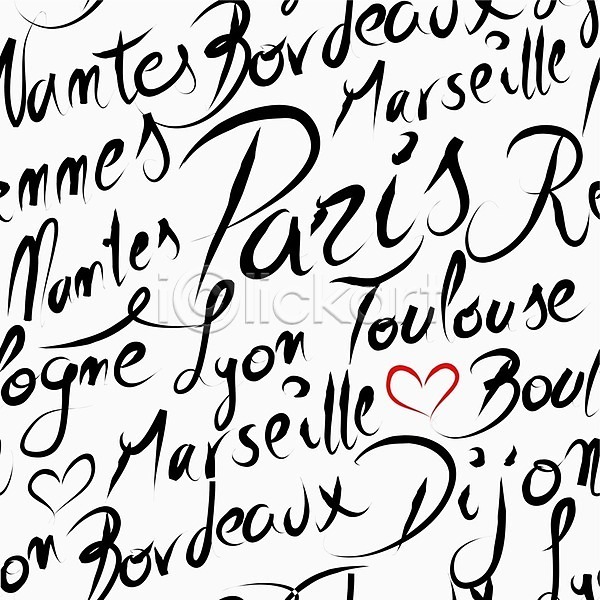 Nantes Bordeaux
Marseille
ennes Paris Re
Nantes
iclickart
logne Lyon Toulouse
Marseille Boul
on Bordeaux Dijon
Ly